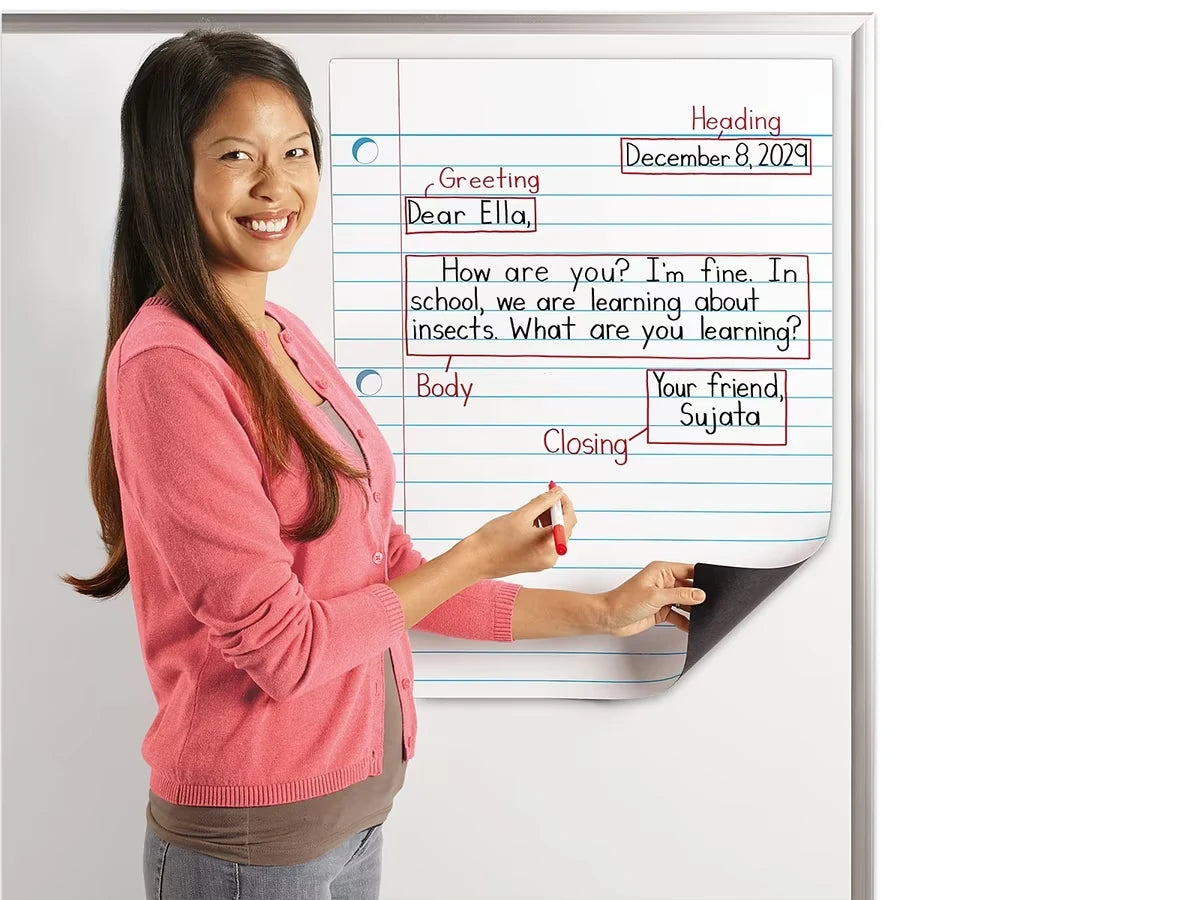 Heading
December 8, 2029
Greeting
Dear Ella,
How are you? I'm fine. In
school, we are learning about
insects. What are you learning?
Body
Your friend,
Sujata
Closing